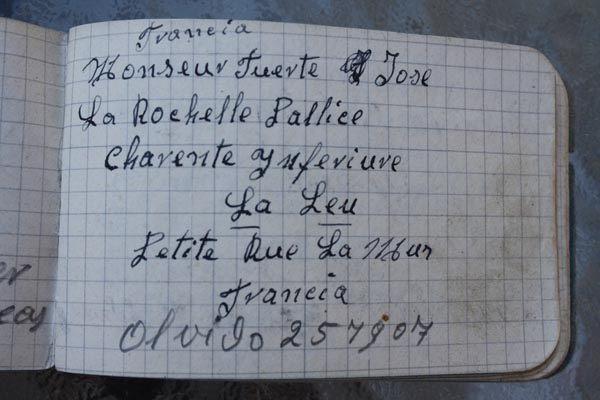 Francia
Monseur Fuerte Jose
La Rochelle Pallice
Charente Ynferiure
La Leu
Petite Rue La Mur
Francia
Olvido 257907